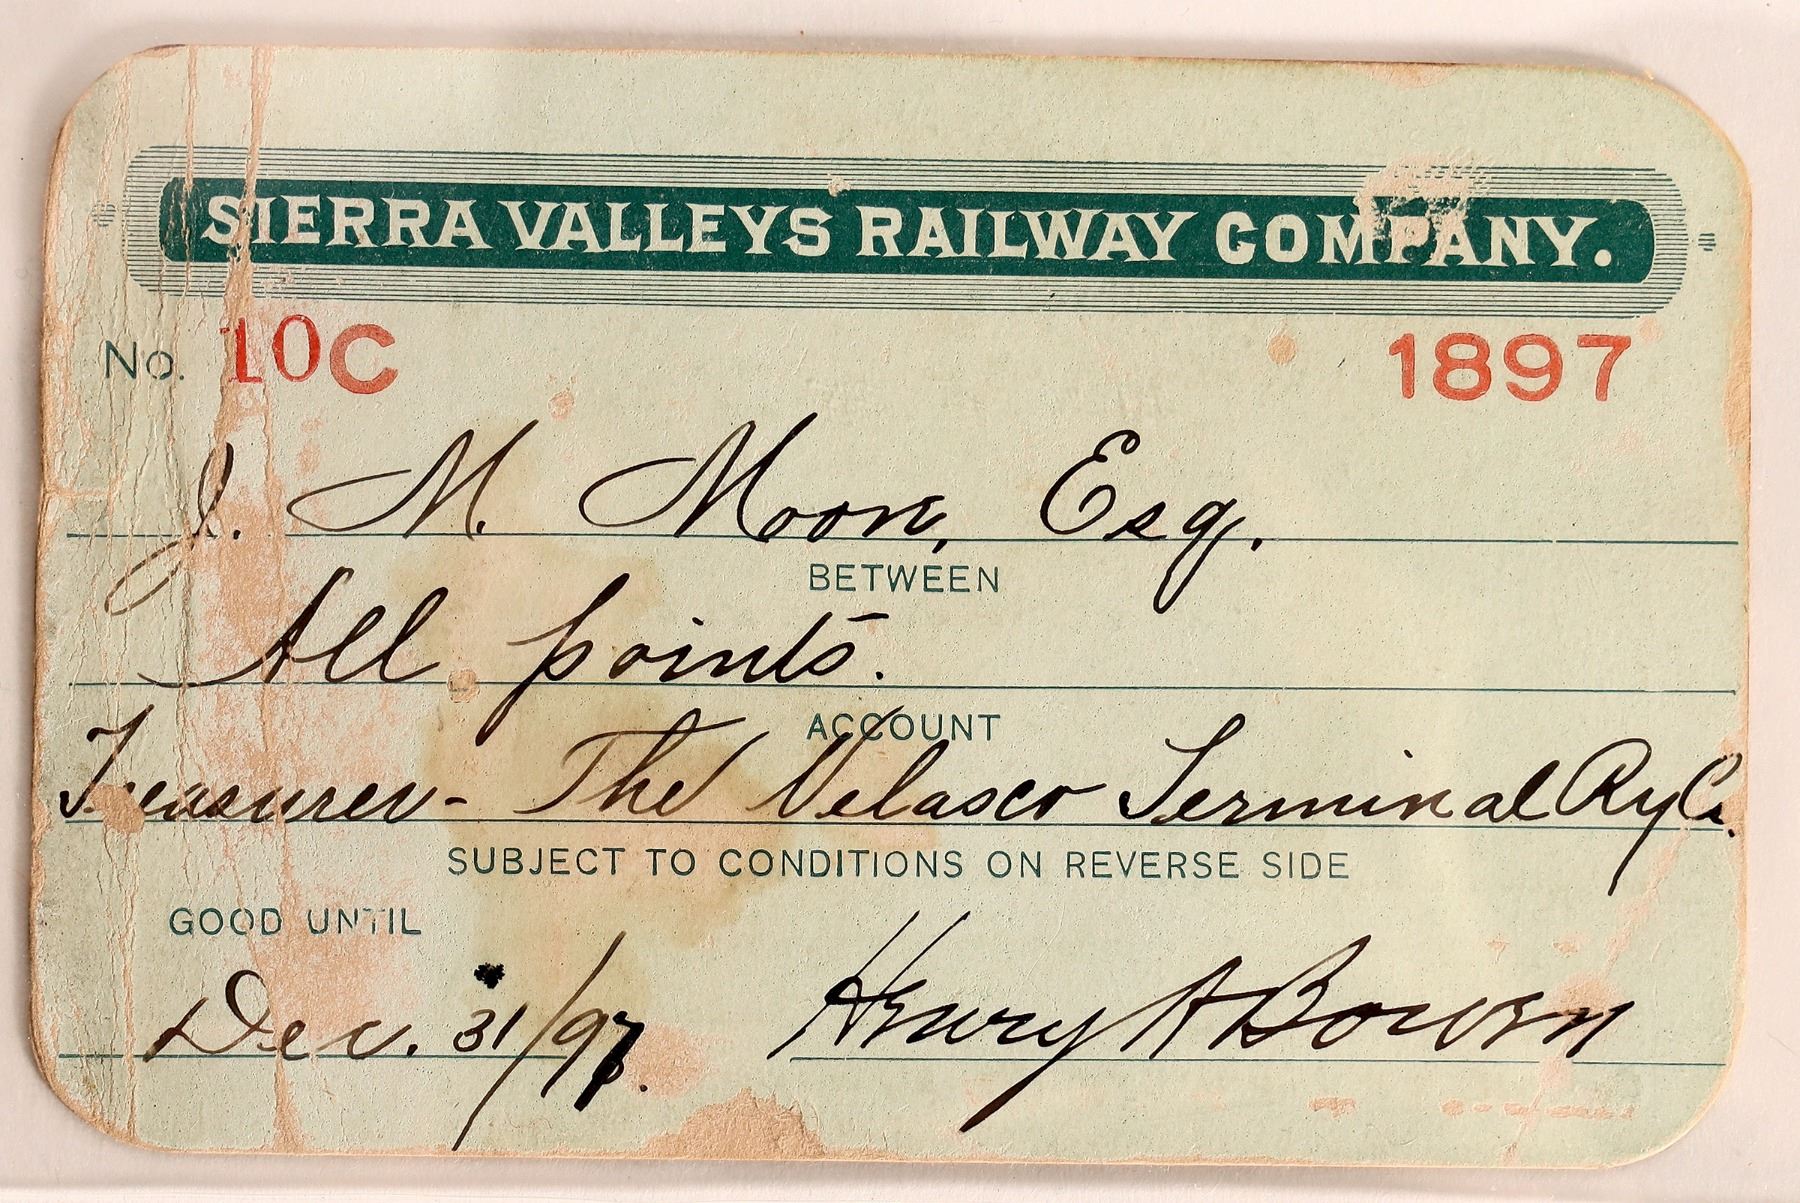 SIERRA VALLEYS RAILWAY COMPANY.
No. 10C 1897
J. M. Moon, Esq.
BETWEEN
All points.
ACCOUNT
Treasurer - The Velasco Terminal Ry Co.
SUBJECT TO CONDITIONS ON REVERSE SIDE
GOOD UNTIL
Dec. 31/97. Henry A Bowen